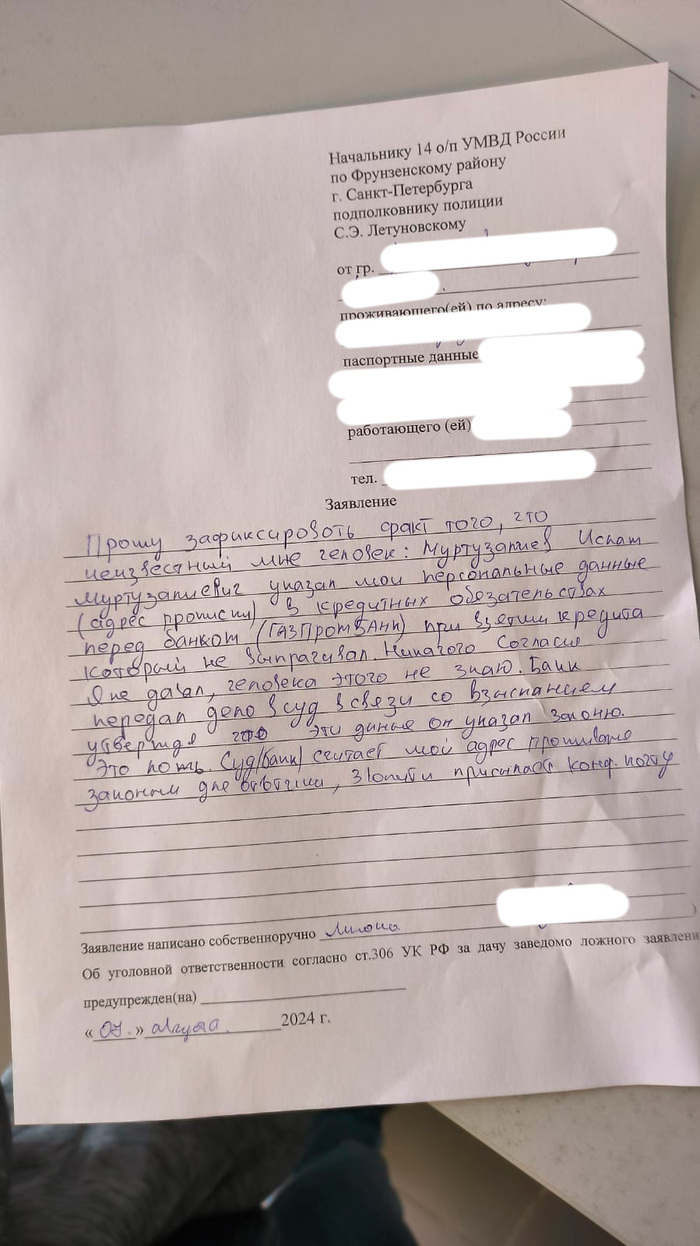 Начальнику 14 о/п УМВД России
по Фрунзенскому району
г. Санкт-Петербурга
подполковнику полиции
С.Э. Летуновскому
от гр.
проживающего(ей) по адресу:
паспортные данные
работающего (ей)
тел.
Заявление
Прошу зафиксировать факт того, что
неизвестный мне человек: Муртузалиев Ислам
Муртузалиевич указал мои персональные данные
(адрес прописки) в кредитных обязательствах
перед банком (ГАЗПРОМБАНК) при взятии кредита
который не выпрагивал. Никагого согласия
Я не давал, человека этого не знаю. Банк
передал дело в суд в связи со взысканием
утверждая что эти даные он указал законно.
Это ложь. Суд/Банк) считает мой адрес
законым для, присылает конф. почту
Заявление написано собственноручно Лично
Об уголовной ответственности согласно ст.306 УК РФ за дачу заведомо ложного заявлени
предупрежден(на)
« 07. » августа. 2024 г.